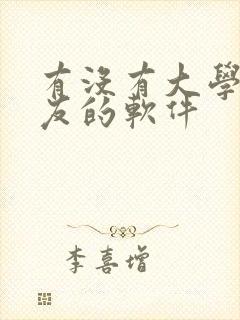 有沒有大學
友的軟件
李喜增